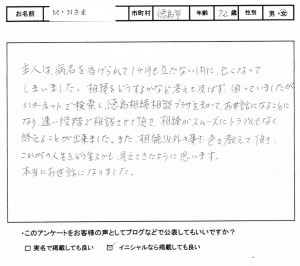 お名前 M・Nさま 市町村 徳島市 年齢 72歳 性別 男・女
主人は病名を告げられて1ヶ月も立たない内に亡くなって
しまいました。相続をどうするかなど考えも及ばず、困っていましたが
インターネットで検索し、徳島相続相談プラザを知って、お世話になることに
なり速い段階で相談させて頂き相続がスムーズにトラブルもなく
終えることが出来ました。また、相続以外の事も色々教えて頂き、
これからの人生をどう生きるかも、見えてきたように思います。
本当にお世話になりました。
・このアンケートをお客様の声としてブログなどで公表してもいいですか?
□ 実名で掲載しても良い ☑ イニシャルなら掲載しても良い